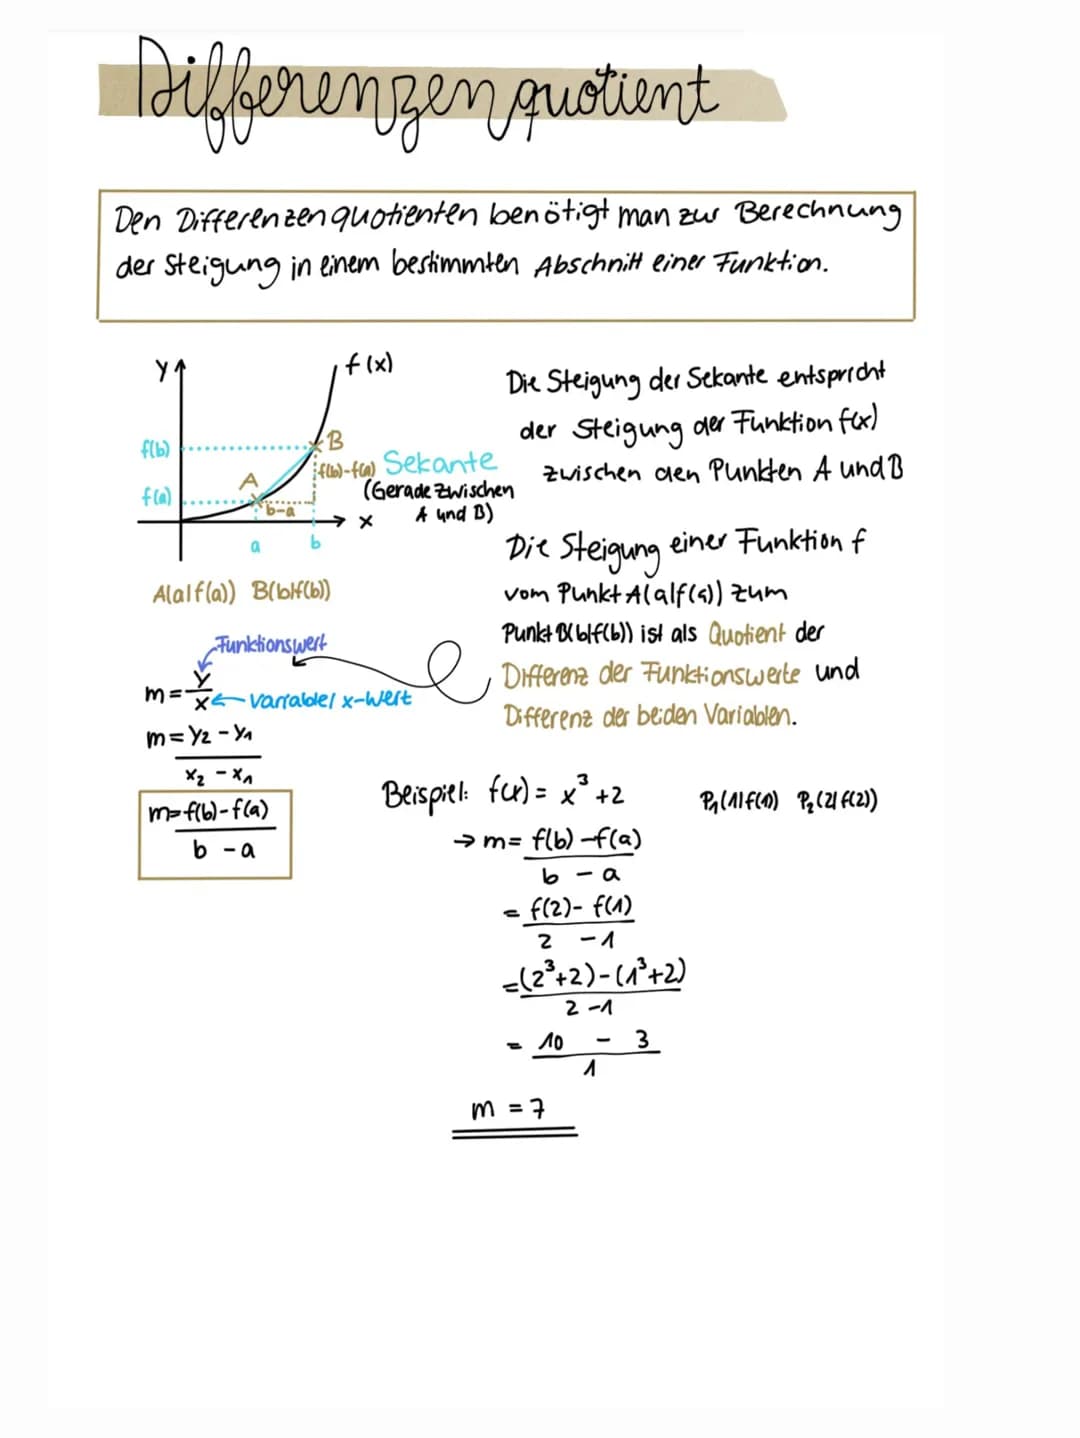 Differenzenquotient
Den Differenzenquotienten benötigt man zur Berechnung
der Steigung in einem bestimmten Abschnitt einer Funktion.
y
f(x)
f(b)
B
f(b)-f(a)
Sekante
(Gerade zwischen
A und B)
A
f(a)
b-a
x
a
b
A(a|f(a)) B(b|f(b))
Die Steigung der Sekante entspricht
der Steigung der Funktion f(x)
zwischen den Punkten A und B
Die Steigung einer Funktion f
vom Punkt A(a|f(a)) zum
Punkt B(b|f(b)) ist als Quotient der
Differenz der Funktionswerte und
Differenz der beiden Variablen.
Funktionswert
m = y/x
Variable/x-Wert
m = y₂ - y₁
x₂ - x₁
m = f(b)-f(a)
b - a
Beispiel: f(x) = x³ +2 P₁(1|f(1)) P₂(2|f(2))
→ m = f(b) - f(a)
b - a
= f(2) - f(1)
2 - 1
= (2³+2) - (1³+2)
2 - 1
= 10 - 3
1
m = 7